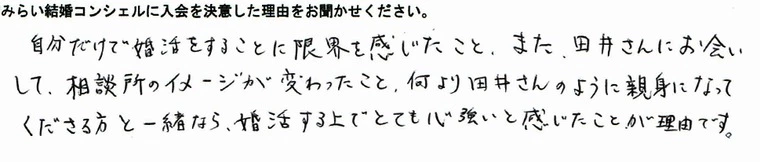 みらい結婚コンシェルに入会を決意した理由をお聞かせください。
自分だけで婚活をすることに限界を感じたこと、また、田井さんにお会い
して、相談所のイメージが変わったこと、何より田井さんのように親身になって
くださる方と一緒なら、婚活する上でとても心強いと感じたことが理由です。